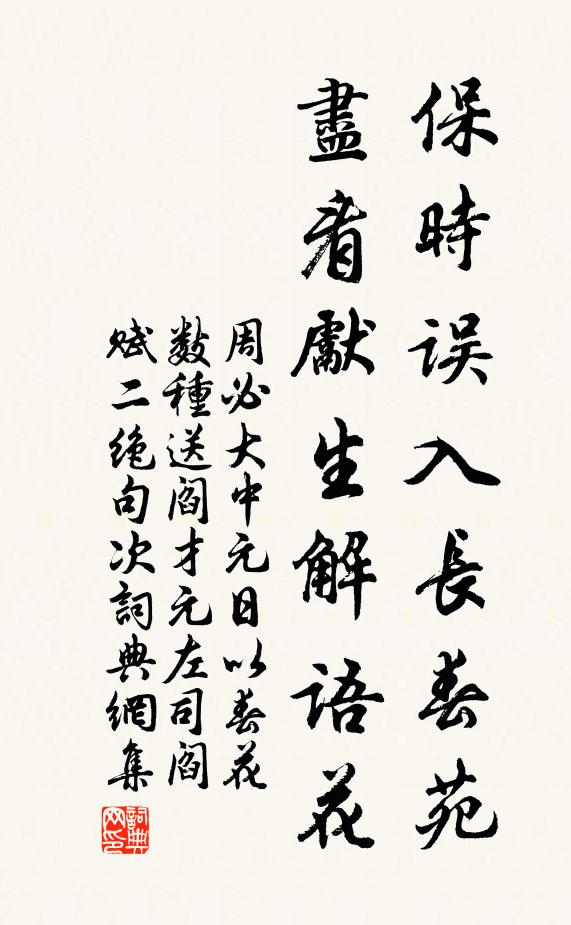 保時误入長春苑
盡看獻生解語花
周必大中元日以春花
数種送阎才元左司阎
赋二绝句次詞典網集
詞典网印